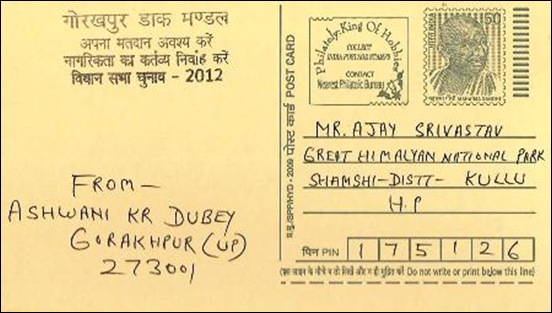 गोरखपुर डाक मण्डल
अपना मतदान अवश्य करें
नागरिकता का कर्तव्य निर्वाह करें
विधान सभा चुनाव - 2012
FROM-
ASHWANI KR DUBEY
GORAKHPUR (UP)
273001
प.मु./SPP/HYD - 2009 पोस्ट कार्ड POST CARD
Philately-King Of Hobbies
COLLECT
INDIA POSTAGE STAMPS
CONTACT
Nearest Philatelic Bureau
50
MR. AJAY SRIVASTAV
GREAT HIMALYAN NATIONAL PARK
SHAMSHI-DISTT- KULLU
H.P
पिन PIN 175126
(इस लाइन के नीचे न तो लिखें और न ही मुद्रित करें Do not write or print below this line)